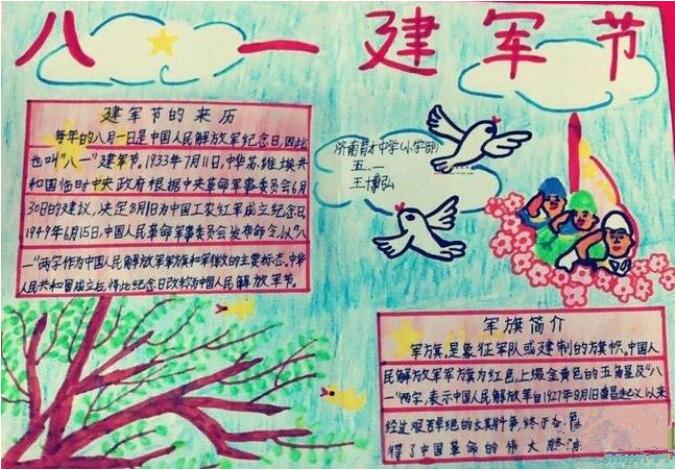 八一建军节
建军节的来历
每年的八月一日是中国人民解放军纪念日,因此
也叫"八一"建军节。1933年7月11日,中华苏维埃共
和国临时中央政府根据中央革命军事委员会6月
30日的建议,决定8月1日为中国工农红军成立纪念日。
1949年6月15日,中国人民革命军事委员会发布命令,以"八
一"两字作为中国人民解放军军旗和军徽的主要标志。中华
人民共和国成立后,将此纪念日改称为中国人民解放军建军节。
济南育才中学(小学部)
五.一
王博弘
军旗简介
军旗,是象征军队或建制的旗帜。中国人
民解放军军旗为红色,上缀金黄色的五角星及"八
一"两字,表示中国人民解放军自1927年8月1日南昌起义以来
经过艰苦卓绝的
斗争,终于
得了中国革命的伟大胜